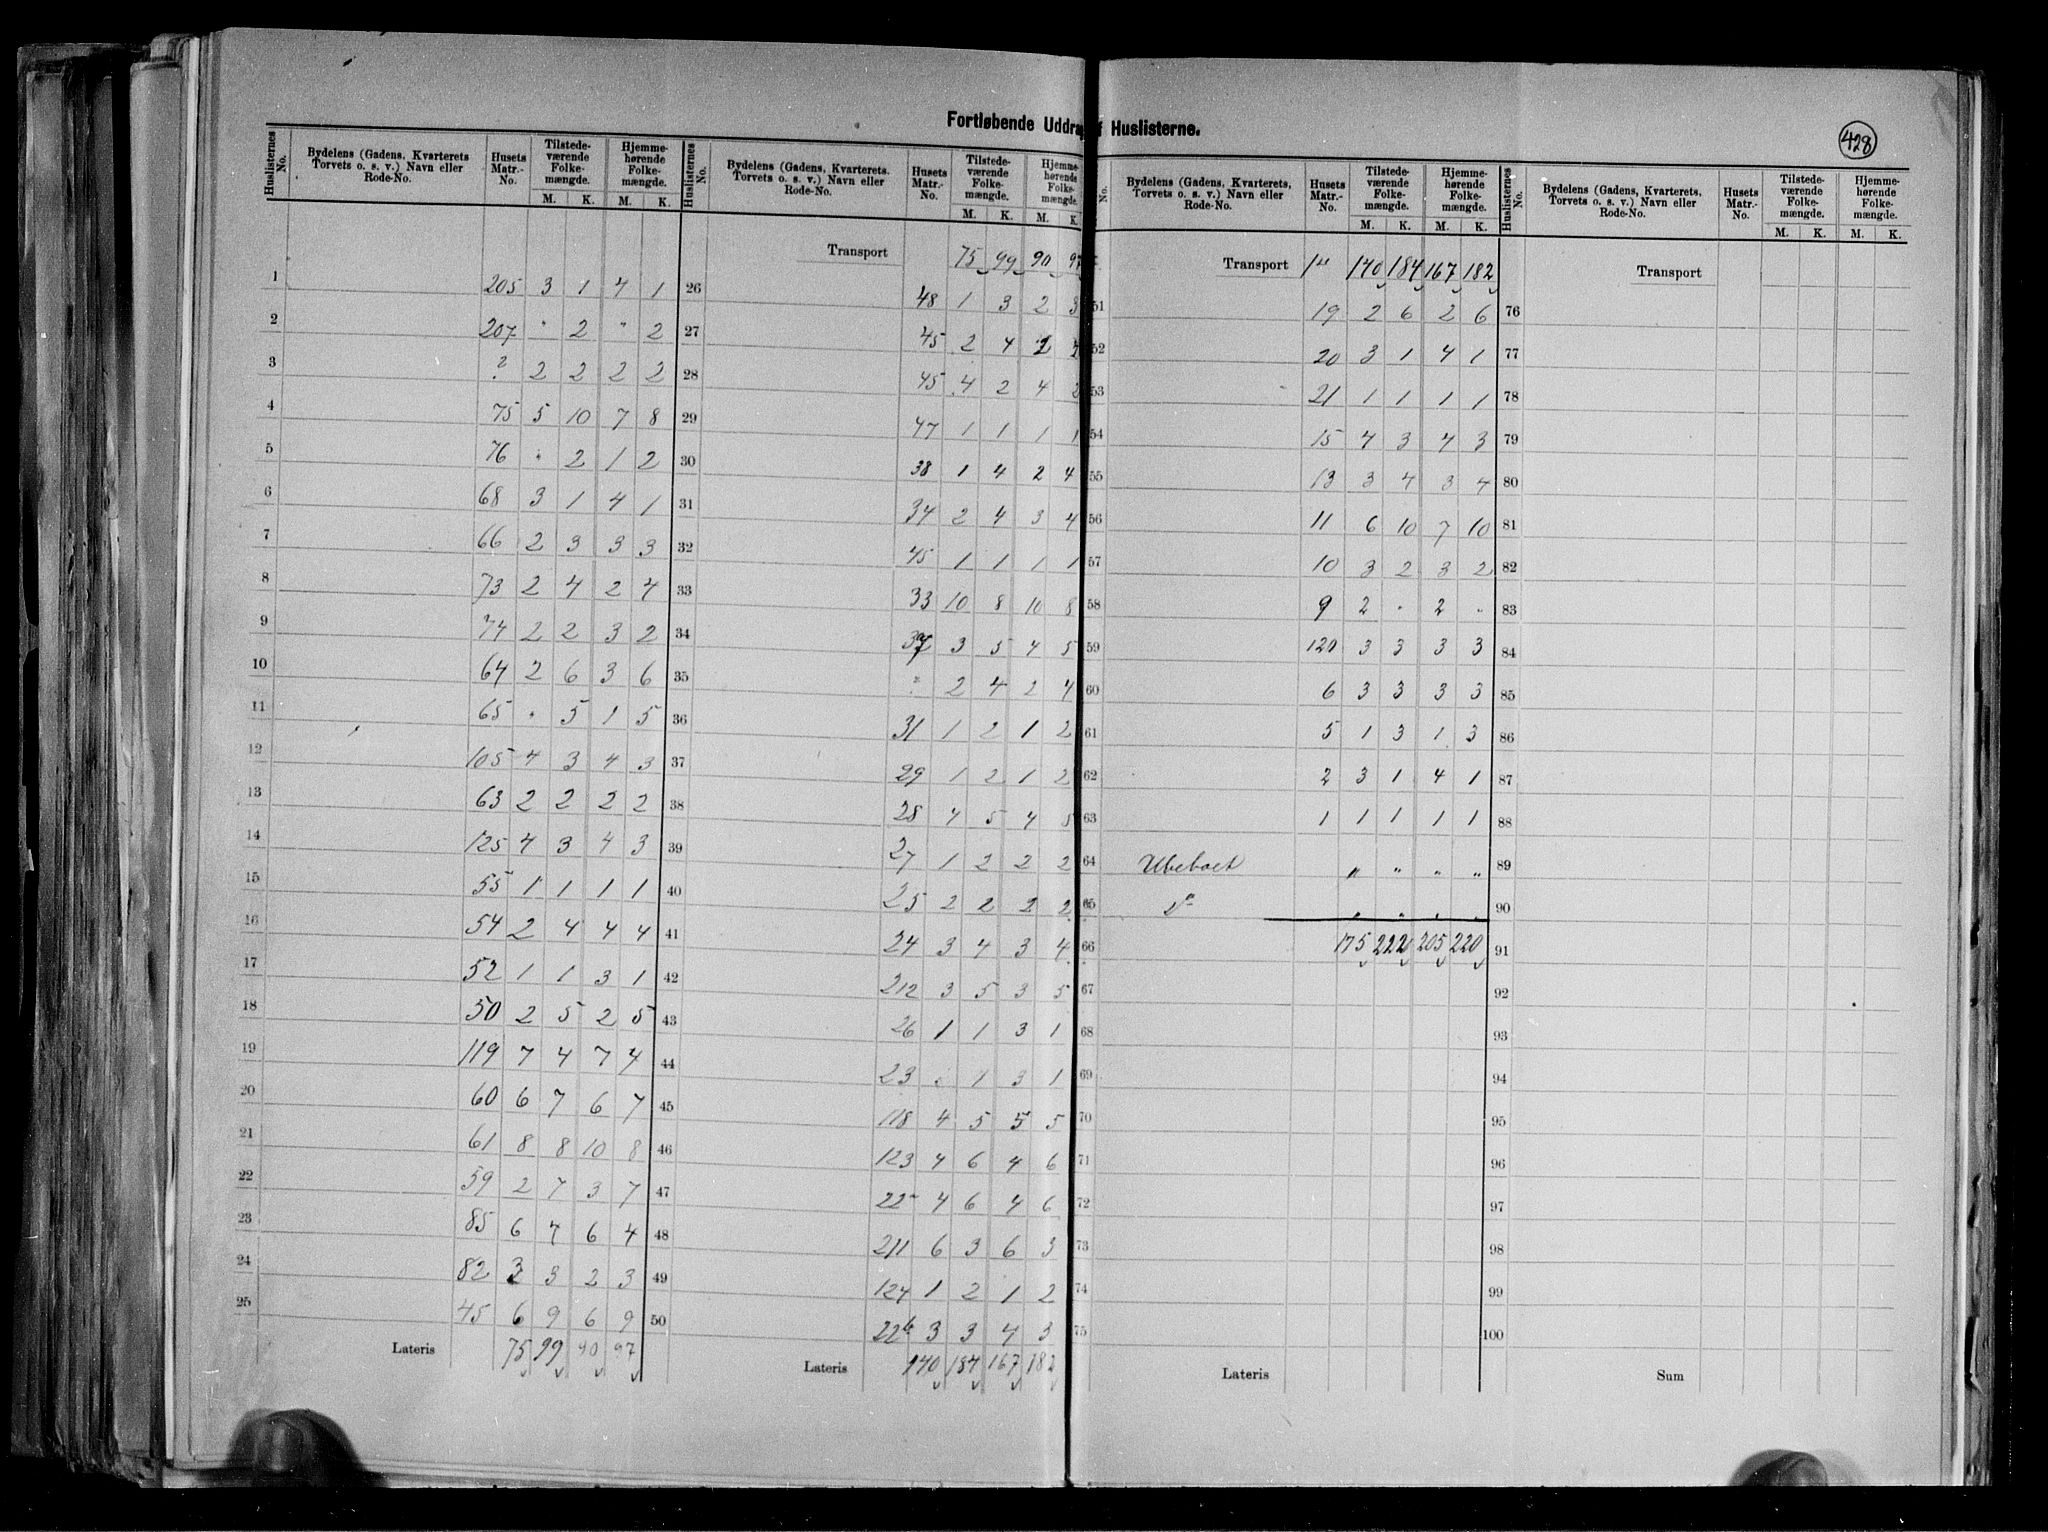 Fortløbende Uddra f Huslisterne.
428
Huslisternes No. Bydelens (Gadens, Kvarterets Torvets o. s. v.) Navn eller Rode-No. Husets Matr.-No. Tilstede-værende Folke-mængde. M. K. Hjemme-hørende Folke-mængde. M. K.
1 205 3 1 4 1
2 207 " 2 " 2
3 ? 2 2 2 2
4 75 5 10 7 8
5 76 " 2 1 2
6 68 3 1 4 1
7 66 2 3 3 3
8 73 2 4 2 4
9 74 2 2 3 2
10 64 2 6 3 6
11 65 " 5 1 5
12 105 4 3 4 3
13 63 2 2 2 2
14 125 4 3 4 3
15 55 1 1 1 1
16 54 2 4 4 4
17 52 1 1 3 1
18 50 2 5 2 5
19 119 7 4 7 4
20 60 6 7 6 7
21 61 8 8 10 8
22 59 2 7 3 7
23 85 6 4 6 4
24 82 3 2 3
25 45 6 9 6 9
Lateris 75 99 90 97
Huslisternes No. Bydelens (Gadens, Kvarterets. Torvets o. s. v.) Navn eller Rode-No. Husets Matr.-No. Tilstede-værende Folke-mængde. M. K. Hjemme-hørende Folke-mængde. M. K.
Transport 75 99 90 97
26 48 1 3 2 3
27 45 2 4 2
28 45 4 2 4 2
29 47 1 1 1 1
30 38 1 4 2 4
31 34 2 4 3 4
32 45 1 1 1 1
33 33 10 8 10 8
34 3 5 4 5
35 " 2 4 2 4
36 31 1 2 1 2
37 29 1 2 1 2
38 28 4 5 4
39 27 1 2 2 2
40 25 2 2 2 2
41 24 3 4 3 4
42 212 3 5 3 5
43 26 1 1 3 1
44 23 " 1 3 1
45 118 4 5 5 5
46 123 4 6 4 6
47 22 4 6 4 6
48 211 6 3 6 3
49 124 1 2 1 2
50 22b 3 3 4 3
Lateris 140 184 167 182
No. Bydelens (Gadens, Kvarterets, Torvets o. s. v.) Navn eller Rode-No. Husets Matr.-No. Tilstede-værende Folke-mængde. M. K. Hjemme-hørende Folke-mængde. M. K.
Transport 140 184 167 182
51 19 2 6 2 6
52 20 3 1 4 1
53 21 1 1 1 1
54 15 4 3 4 3
55 13 3 4 3 4
56 11 6 10 7 10
57 10 3 2 3 2
58 9 2 " 2 "
59 120 3 3 3 3
60 6 3 3 3 3
61 5 1 3 1 3
62 2 3 1 4 1
63 1 1 1 1 1
64 Ubeboet " " " "
65 do " " " "
66 175 222 205 220
67
68
69
70
71
72
73
74
75
Lateris
Huslisternes No. Bydelens (Gadens, Kvarterets, Torvets o. s. v.) Navn eller Rode-No. Husets Matr.-No. Tilstede-værende Folke-mængde. M. K. Hjemme-hørende Folke-mængde. M. K.
Transport
76
77
78
79
80
81
82
83
84
85
86
87
88
89
90
91
92
93
94
95
96
97
98
99
100
Sum